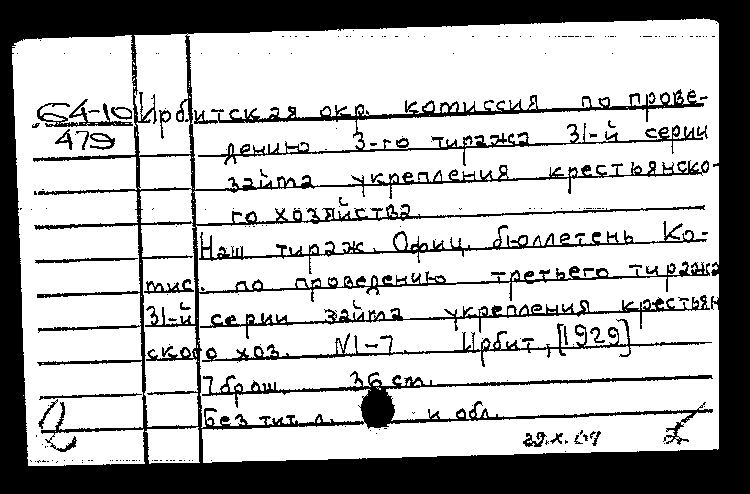 64-10
479
Ирбитская окр. комиссия по прове-
дению 3-го тиража 31-й серии
займа укрепления крестьянско-
го хозяйства.
Наш тираж. Офиц. бюллетень Ко-
мис. по проведению третьего тиража
31-й серии займа укрепления крестьян
ского хоз. N1-7. Ирбит, [1929]
7 брош. 36 см.
Без тит. л. и обл.